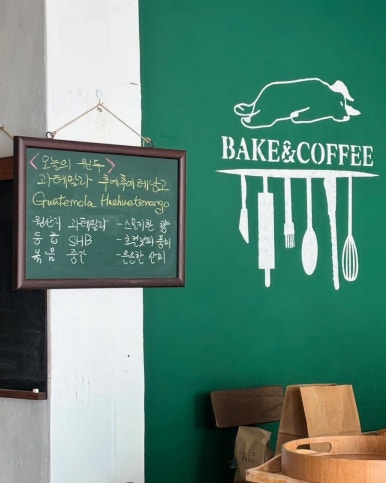 <오늘의 원두>
과테말라 후에후에테낭고
Guatemala Huehuetenango
원산지 과테말라 -스모키한 향
등급 SHB -초컬릿의 풍미
볶음 중간 -은은한 산미
BAKE&COFFEE